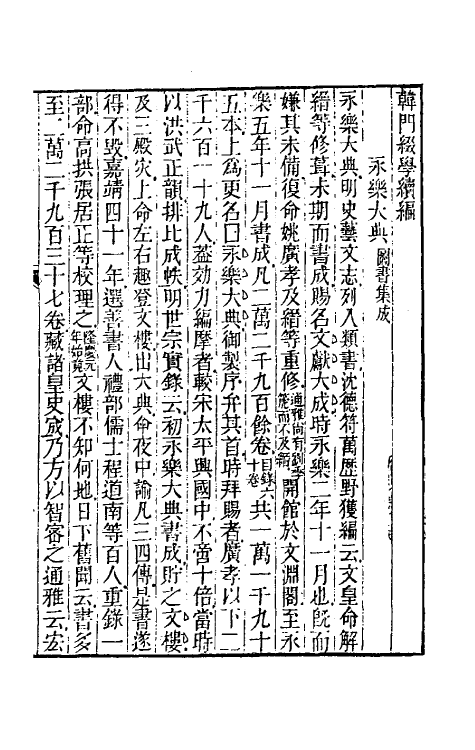 韓門綴學續編
永樂大典 圖書集成
永樂大典明史藝文志列入類書沈德符萬歷野獲編云文皇命解
縉等修葺未期而書成賜名文獻大成時永樂二年十一月也既而
嫌其未備復命姚廣孝及縉等重修 開館於文淵閣至永
樂五年十一月書成凡二萬二千九百餘卷目錄六十卷共一萬一千九十
五本上為更名曰永樂大典御製序弁其首時拜賜者廣孝以下二
千六百一十九人葢効力編摩者較宋太平興國中不啻十倍當時
以洪武正韻排比成帙明世宗實錄云初永樂大典書成貯之文樓
及三殿灾上命左右趣登文樓出大典命夜中諭凡三四傳是書遂
得不毀嘉靖四十一年選善書人禮部儒士程道南等百人重錄一
部命高拱張居正等校理之隆慶元年始竟文樓不知何地日下舊聞云書多
至二萬二千九百三十七卷藏諸皇史宬乃方以智密之通雅云宏